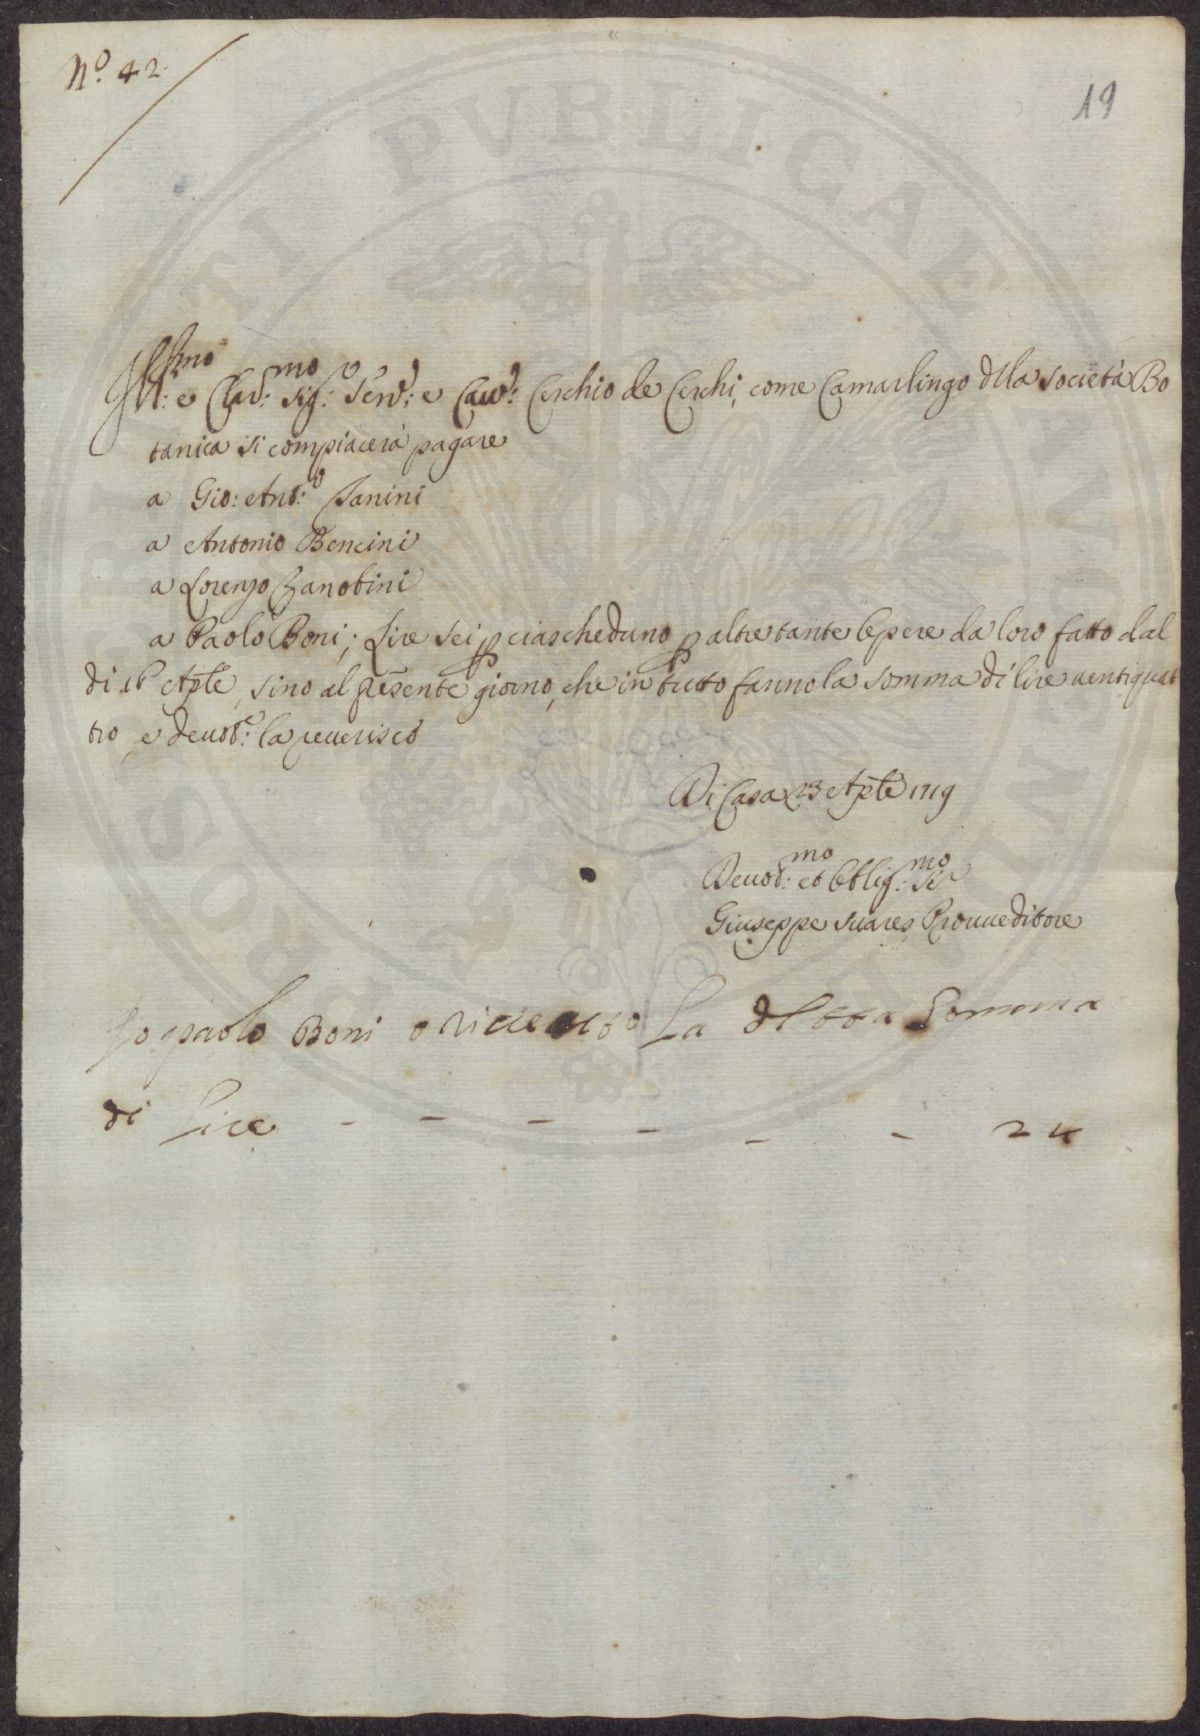 N.o 42.
19
PVBLICAE
Ill:mo e Clar:mo Sig:r Sen:r e Cav:r Cerchio de Cerchi, come Camarlingo dlla società Bo
tanica si compiacerà pagare
a Gio: Ant:o
a Antonio Bencini
a Lorenzo Zanobini
a Paolo Boni; Lire sei p ciascheduno p altretante lepere da loro fatto dal
di 16 Aple, sino al presente giorno, che in tutto fanno la somma di lire uentiquat
tro e deuot:e la reuerisco
Di Casa 23 Aple 1719
Deuot:mo et Obblig:mo Se
Giuseppe Suares Proueditore
Io paolo Boni o riceuto La detta Somma
di Lire - - - - - - 24